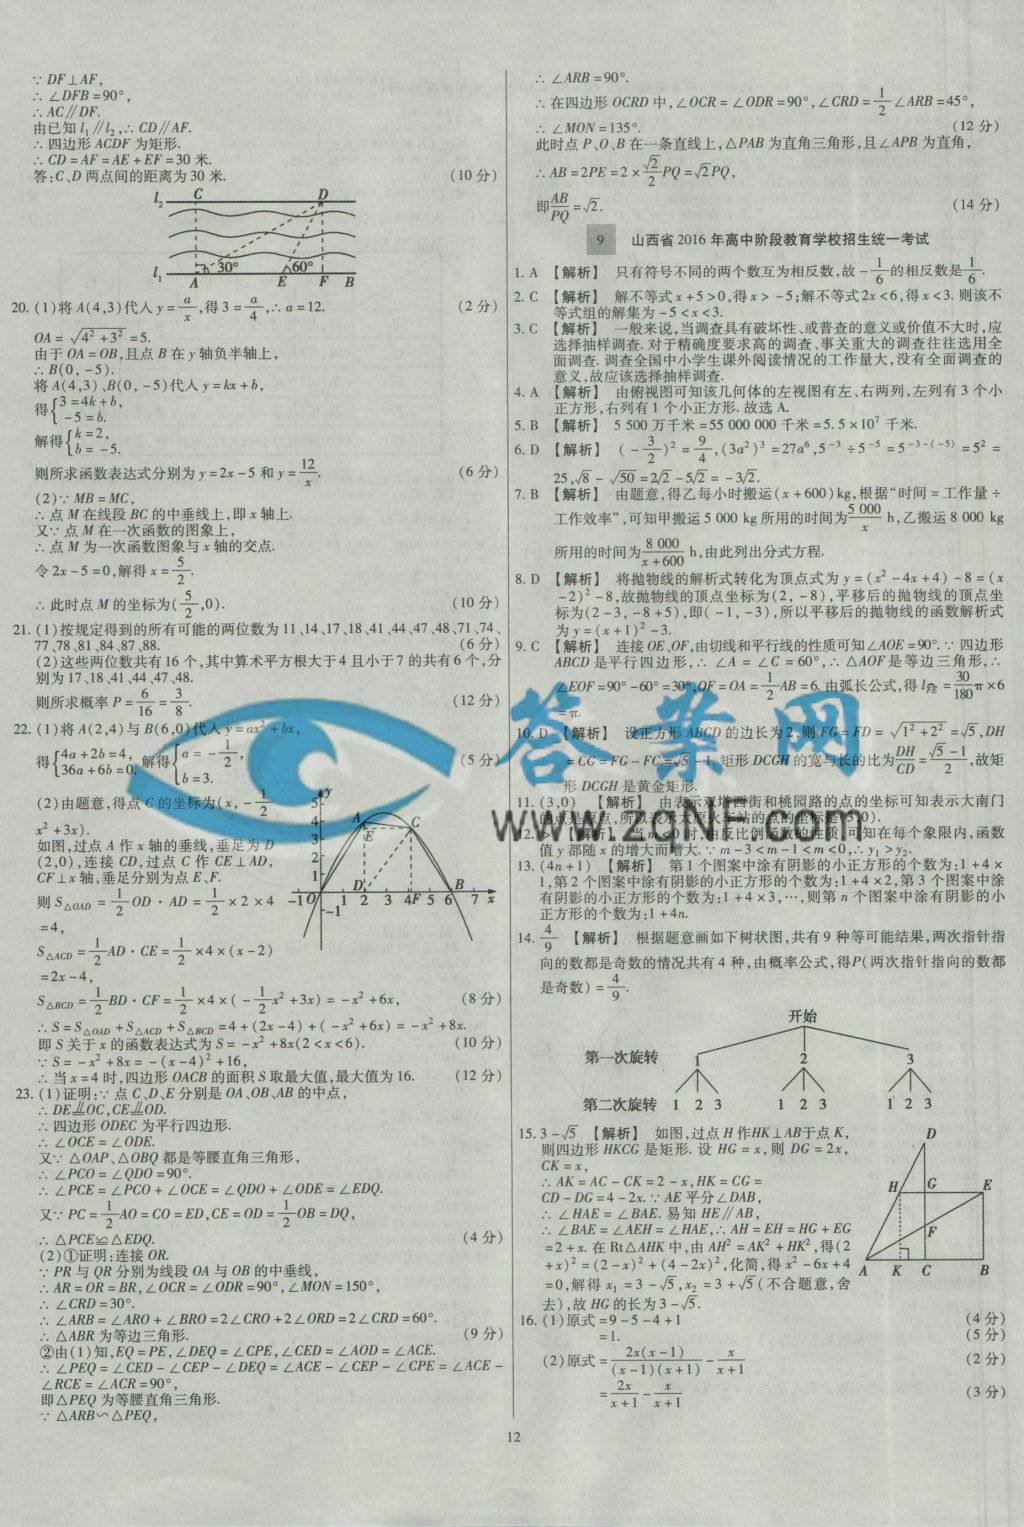 ∵ DF⊥AF,
∴ ∠DFB=90°,
∴ AC∥DF.
由已知 l₁∥l₂,∴ CD∥AF.
∴ 四边形 ACDF 为矩形.
∴ CD=AF=AE+EF=30 米.
答:C、D 两点间的距离为 30 米. (10 分)
l₂ C D
30° 60°
l₁ A E F B
20. (1)将 A(4,3)代入 y=a/x,得 3=a/4,∴ a=12. (2 分)
OA=√(4²+3²)=5.
由于 OA=OB,且点 B 在 y 轴负半轴上,
∴ B(0,-5).
将 A(4,3)、B(0,-5)代入 y=kx+b,
得{3=4k+b, -5=b.
解得{k=2, b=-5.
则所求函数表达式分别为 y=2x-5 和 y=12/x. (6 分)
(2)∵ MB=MC,
∴ 点 M 在线段 BC 的中垂线上,即 x 轴上.
又∵ 点 M 在一次函数的图象上,
∴ 点 M 为一次函数图象与 x 轴的交点.
令 2x-5=0,解得 x=5/2.
∴ 此时点 M 的坐标为(5/2,0). (10 分)
21. (1)按规定得到的所有可能的两位数为 11、14、17、18、41、44、47、48、71、74、
77、78、81、84、87、88. (6 分)
(2)这些两位数共有 16 个,其中算术平方根大于 4 且小于 7 的共有 6 个,分
别为 17、18、41、44、47、48.
则所求概率 P=6/16=3/8. (12 分)
22. (1)将 A(2,4)与 B(6,0)代入 y=ax²+bx,
得{4a+2b=4, 36a+6b=0. 解得{a=-1/2, b=3. (5 分)
(2)由题意,得点 C 的坐标为(x,-1/2
x²+3x).
如图,过点 A 作 x 轴的垂线,垂足为 D
(2,0),连接 CD,过点 C 作 CE⊥AD,
CF⊥x 轴,垂足分别为点 E、F.
则 S△OAD=1/2 OD·AD=1/2×2×4
=4,
S△ACD=1/2 AD·CE=1/2×4×(x-2)
=2x-4,
S△BCD=1/2 BD·CF=1/2×4×(-1/2x²+3x)=-x²+6x, (8 分)
∴ S=S△OAD+S△ACD+S△BCD=4+(2x-4)+(-x²+6x)=-x²+8x.
即 S 关于 x 的函数表达式为 S=-x²+8x(2<x<6). (10 分)
∵ S=-x²+8x=-(x-4)²+16,
∴ 当 x=4 时,四边形 OACB 的面积 S 取最大值,最大值为 16. (12 分)
23. (1)证明:∵ 点 C、D、E 分别是 OA、OB、AB 的中点,
∴ DE∥=OC,CE∥=OD.
∴ 四边形 ODEC 为平行四边形.
∴ ∠OCE=∠ODE.
又∵ △OAP、△OBQ 都是等腰直角三角形,
∴ ∠PCO=∠QDO=90°.
∴ ∠PCE=∠PCO+∠OCE=∠QDO+∠ODE=∠EDQ.
又∵ PC=1/2 AO=CO=ED,CE=OD=1/2 OB=DQ,
∴ △PCE≌△EDQ. (4 分)
(2)①证明:连接 OR.
∵ PR 与 QR 分别为线段 OA 与 OB 的中垂线,
∴ AR=OR=BR,∠OCR=∠ODR=90°,∠MON=150°,
∴ ∠CRD=30°.
∴ ∠ARB=∠ARO+∠BRO=2∠CRO+2∠ORD=2∠CRD=60°.
∴ △ABR 为等边三角形. (9 分)
②由(1)知,EQ=PE,∠DEQ=∠CPE,∠CED=∠AOD=∠ACE.
∴ ∠PEQ=∠CED-∠CEP-∠DEQ=∠ACE-∠CEP-∠CPE=∠ACE-
∠RCE=∠ACR=90°,
即△PEQ 为等腰直角三角形.
∵ △ARB∽△PEQ,
∴ ∠ARB=90°.
∴ 在四边形 OCRD 中,∠OCR=∠ODR=90°,∠CRD=1/2∠ARB=45°,
∴ ∠MON=135°. (12 分)
此时点 P、O、B 在一条直线上,△PAB 为直角三角形,且∠APB 为直角,
∴ AB=2PE=2×√2/2 PQ=√2PQ,
即AB/PQ=√2. (14 分)
9 山西省 2016 年高中阶段教育学校招生统一考试
1. A 【解析】 只有符号不同的两个数互为相反数,故-1/6的相反数是1/6.
2. C 【解析】 解不等式 x+5>0,得 x>-5;解不等式 2x<6,得 x<3. 则该不
等式组的解集为-5<x<3.
3. C 【解析】 一般来说,当调查具有破坏性、或普查的意义或价值不大时,应
选择抽样调查. 对于精确度要求高的调查、事关重大的调查往往选用全
面调查. 调查全国中小学生课外阅读情况的工作量大,没有全面调查的
意义,故应该选择抽样调查.
4. A 【解析】 由俯视图可知该几何体的左视图有左、右两列,左列有 3 个小
正方形,右列有 1 个小正方形. 故选 A.
5. B 【解析】 5 500 万千米=55 000 000 千米=5.5×10⁷ 千米.
6. D 【解析】 (-3/2)²=9/4,(3a²)³=27a⁶,5⁻³÷5⁻⁵=5⁻³⁻⁽⁻⁵⁾=5²=
25,√8-√50=2√2-5√2=-3√2.
7. B 【解析】 由题意,得乙每小时搬运(x+600)kg,根据“时间=工作量÷
工作效率”,可知甲搬运 5 000 kg 所用的时间为5 000/x h,乙搬运 8 000 kg
所用的时间为8 000/(x+600) h,由此列出分式方程.
8. D 【解析】 将抛物线的解析式转化为顶点式为 y=(x²-4x+4)-8=(x
-2)²-8,故抛物线的顶点坐标为(2,-8),平移后的抛物线的顶点坐
标为(2-3,-8+5),即(-1,-3),所以平移后的抛物线的函数解析式
为 y=(x+1)²-3.
9. C 【解析】 连接 OE、OF,由切线和平行线的性质可知∠AOE=90°.∵ 四边形
ABCD 是平行四边形,∴ ∠A=∠C=60°,∴ △AOF 是等边三角形,∴
∠EOF=90°-60°=30°,OF=OA=1/2 AB=6. 由弧长公式,得 l FE=30/180 π×6
=π.
10. D 【解析】 设正方形 ABCD 的边长为 2,则 FG=FD=√(1²+2²)=√5,DH
=CG=FG-FC=√5-1,矩形 DCGH 的宽与长的比为DH/CD=(√5-1)/2,故矩
形 DCGH 是黄金矩形.
11. (3,0) 【解析】 由表示双塔西街和桃园路的点的坐标可知表示大南门
的点是原点,所以表示太原火车站的点的坐标是(3,0).
12. > 【解析】 当 m<0 时,由反比例函数的性质,可知在每个象限内,函数
值 y 都随 x 的增大而增大.∵ m-3<m-1<m<0,∴ y₁>y₂.
13. (4n+1) 【解析】 第 1 个图案中涂有阴影的小正方形的个数为:1+4×
1,第 2 个图案中涂有阴影的小正方形的个数为:1+4×2,第 3 个图案中涂
有阴影的小正方形的个数为:1+4×3,…,则第 n 个图案中涂有阴影的小
正方形的个数为:1+4n.
14. 4/9 【解析】 根据题意画如下树状图,共有 9 种等可能结果,两次指针指
向的数都是奇数的情况共有 4 种,由概率公式,得P(两次指针指向的数都
是奇数)=4/9.
开始
第一次旋转 1 2 3
第二次旋转 1 2 3 1 2 3 1 2 3
15. 3-√5 【解析】 如图,过点 H 作HK⊥AB于点 K,
则四边形 HKCG 是矩形. 设 HG=x,则 DG=2x,
CK=x,
∴ AK=AC-CK=2-x,HK=CG=
CD-DG=4-2x.∵ AE 平分∠DAB,
∴ ∠HAE=∠BAE. 易知 HE∥AB,
∴ ∠BAE=∠AEH=∠HAE,∴ AH=EH=HG+EG
=2+x. 在 Rt△AHK 中,由 AH²=AK²+HK²,得(2
+x)²=(2-x)²+(4-2x)²,化简,得 x²-6x+4
=0,解得 x₁=3-√5,x₂=3+√5(不合题意,舍
去),故 HG 的长为 3-√5.
D
H G E
F
A K C B
16. (1)原式=9-5-4+1 (4 分)
=1. (5 分)
(2)原式=2x(x-1)/((x-1)(x+1))-x/(x+1) (2 分)
=2x/(x+1)-x/(x+1) (3 分)
12
答案网